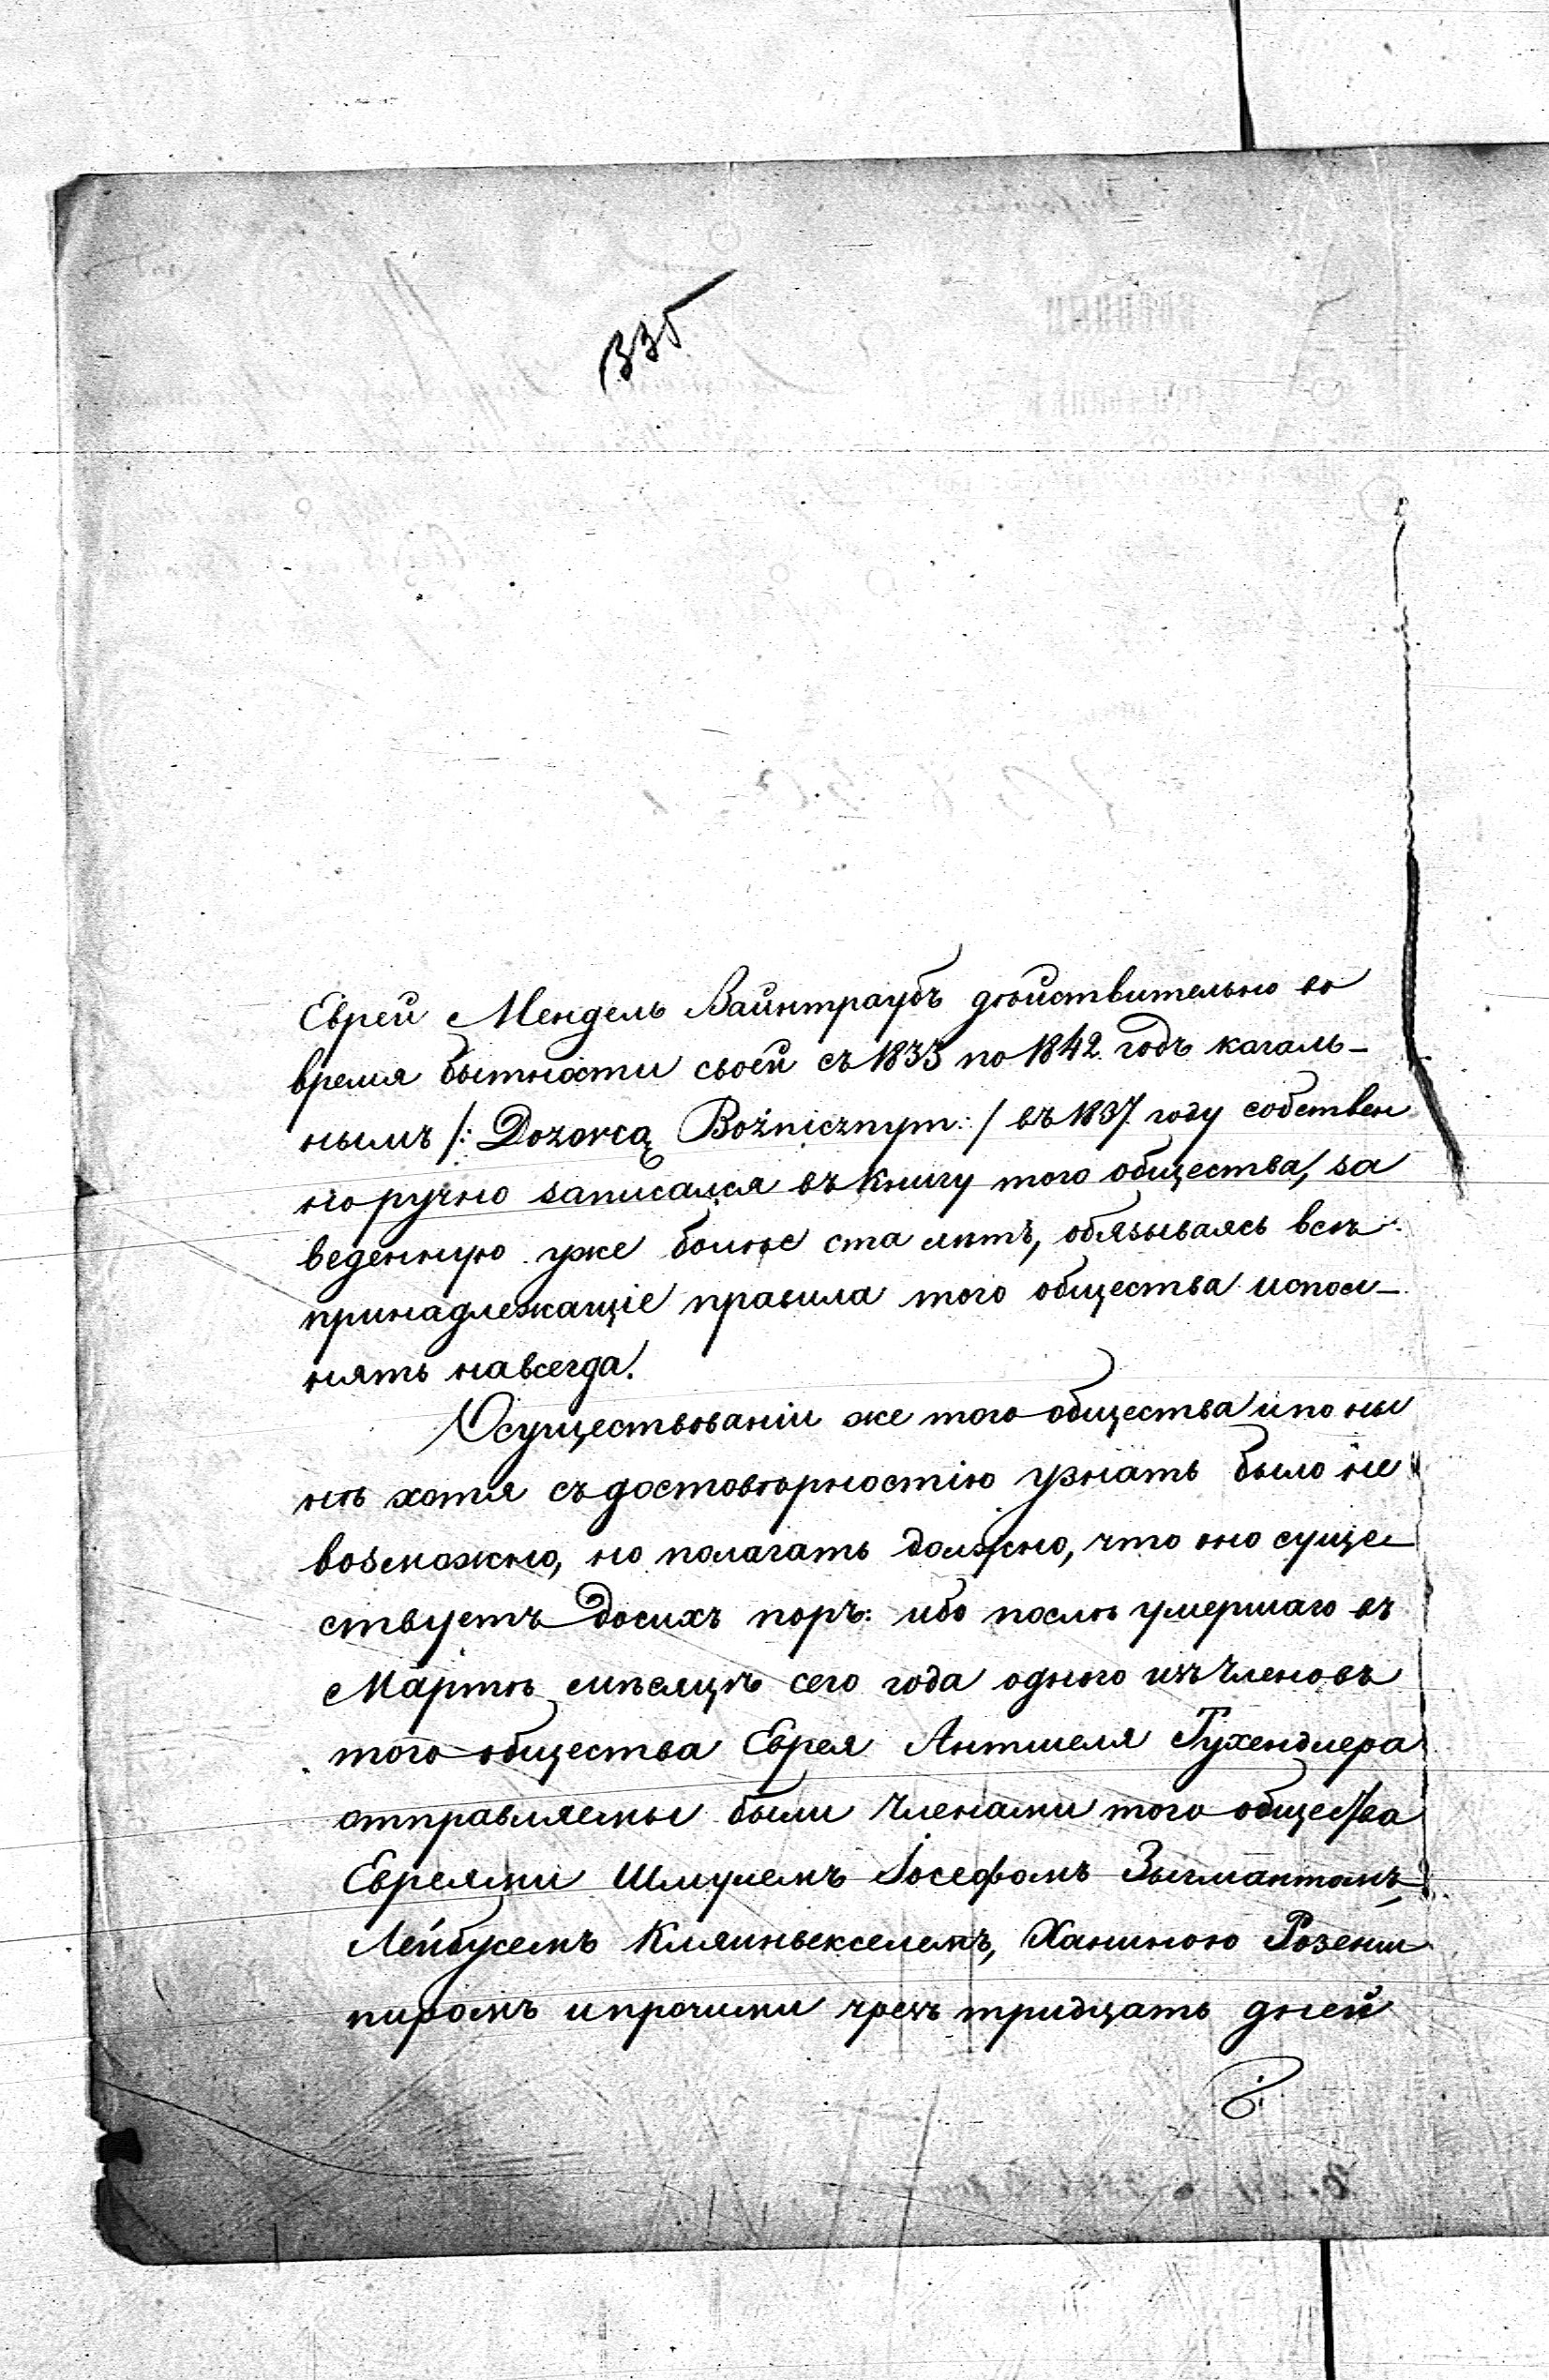 335
Еврей Мендель Вайнтраубъ дѣйствительно во
время бытности своей съ 1833 по 1842. годъ кагаль-
нымъ /: Dozorcą Bożnicznym :/ въ 1837 году собствен
норучно записался въ книгу того общества, за
веденную уже болѣе ста лѣтъ, обязываясь всѣ
принадлежащіе правила того общества испол-
нять навсегда.
О существованіи же того общества и по ны
нѣ хотя съ достовѣрностію узнать было не
возможно, но полагать должно, что оно суще
ствуетъ до сихъ поръ: ибо послѣ умершаго въ
Мартѣ мѣсяцѣ сего года одного изъ членовъ
того общества Еврея Антшеля Тухендлера
отправляемы были членами того общества
Евреями Шмулемъ Іосефомъ Зыгмантомъ,
Лейбусемъ Кляинвекселемъ, Ханиною Розенш
пиромъ и прочими чрезъ тридцать дней